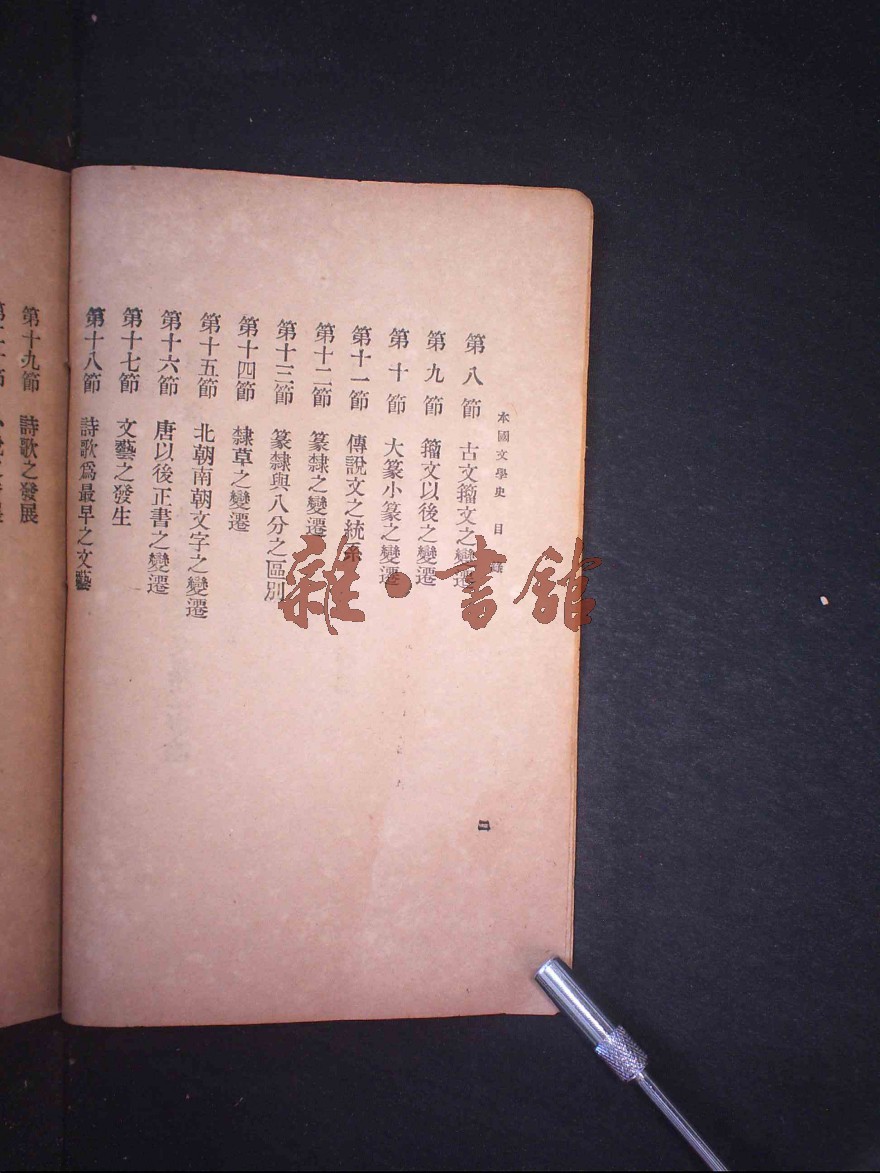 本國文學史 目錄
第八節 古文籀文之變遷
第九節 籀文以後之變遷
第十節 大篆小篆之變遷
第十一節 傳說文之統系
第十二節 篆隸之變遷
第十三節 篆隸與八分之區別
第十四節 隸草之變遷
第十五節 北朝南朝文字之變遷
第十六節 唐以後正書之變遷
第十七節 文藝之發生
第十八節 詩歌爲最早之文藝
二
第十九節 詩歌之發展
雜·書館